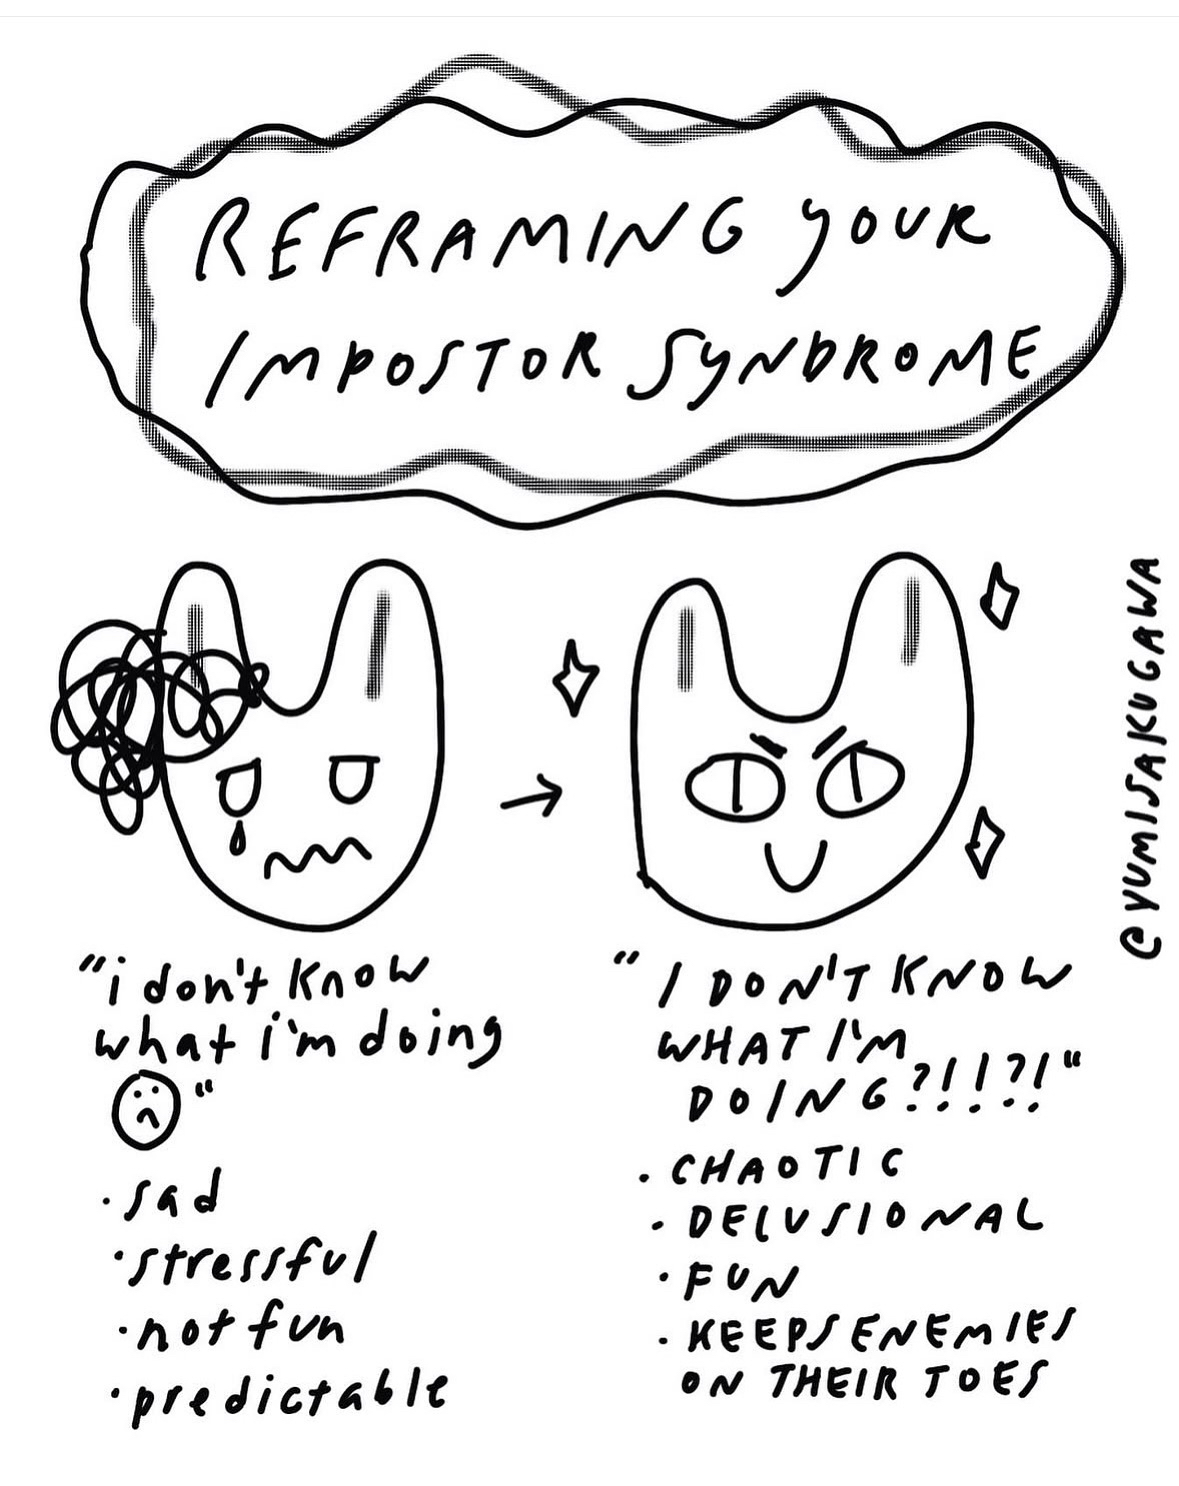 REFRAMING YOUR
IMPOSTOR SYNDROME
"i don't know
what i'm doing
"
• sad
• stressful
• not fun
• predictable
" I DON'T KNOW
WHAT I'M
DOING?!!?!"
• CHAOTIC
• DELUSIONAL
• FUN
• KEEPS ENEMIES
ON THEIR TOES
@YUMISAKUGAWA